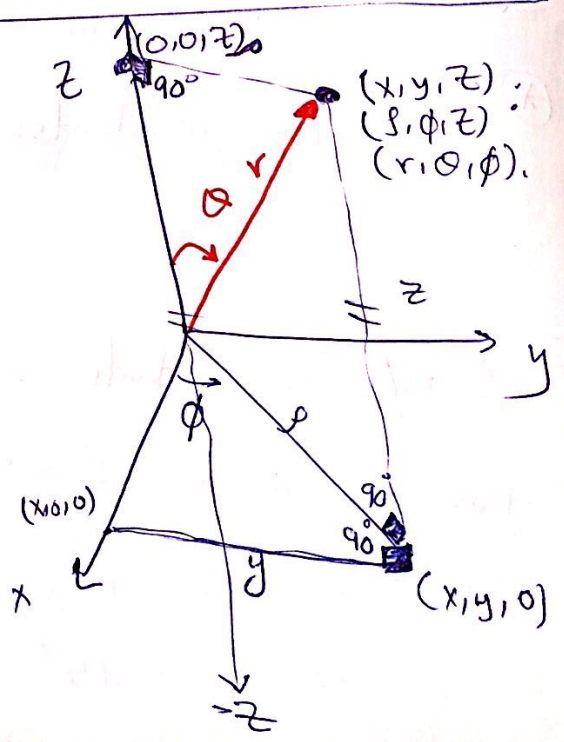 (0,0,z)
z
90°
(x,y,z) :
(ρ,φ,z)
(r,θ,φ).
r
θ
z
y
φ
ρ
(x,0,0)
90°
90°
y
x
(x,y,0)
-z